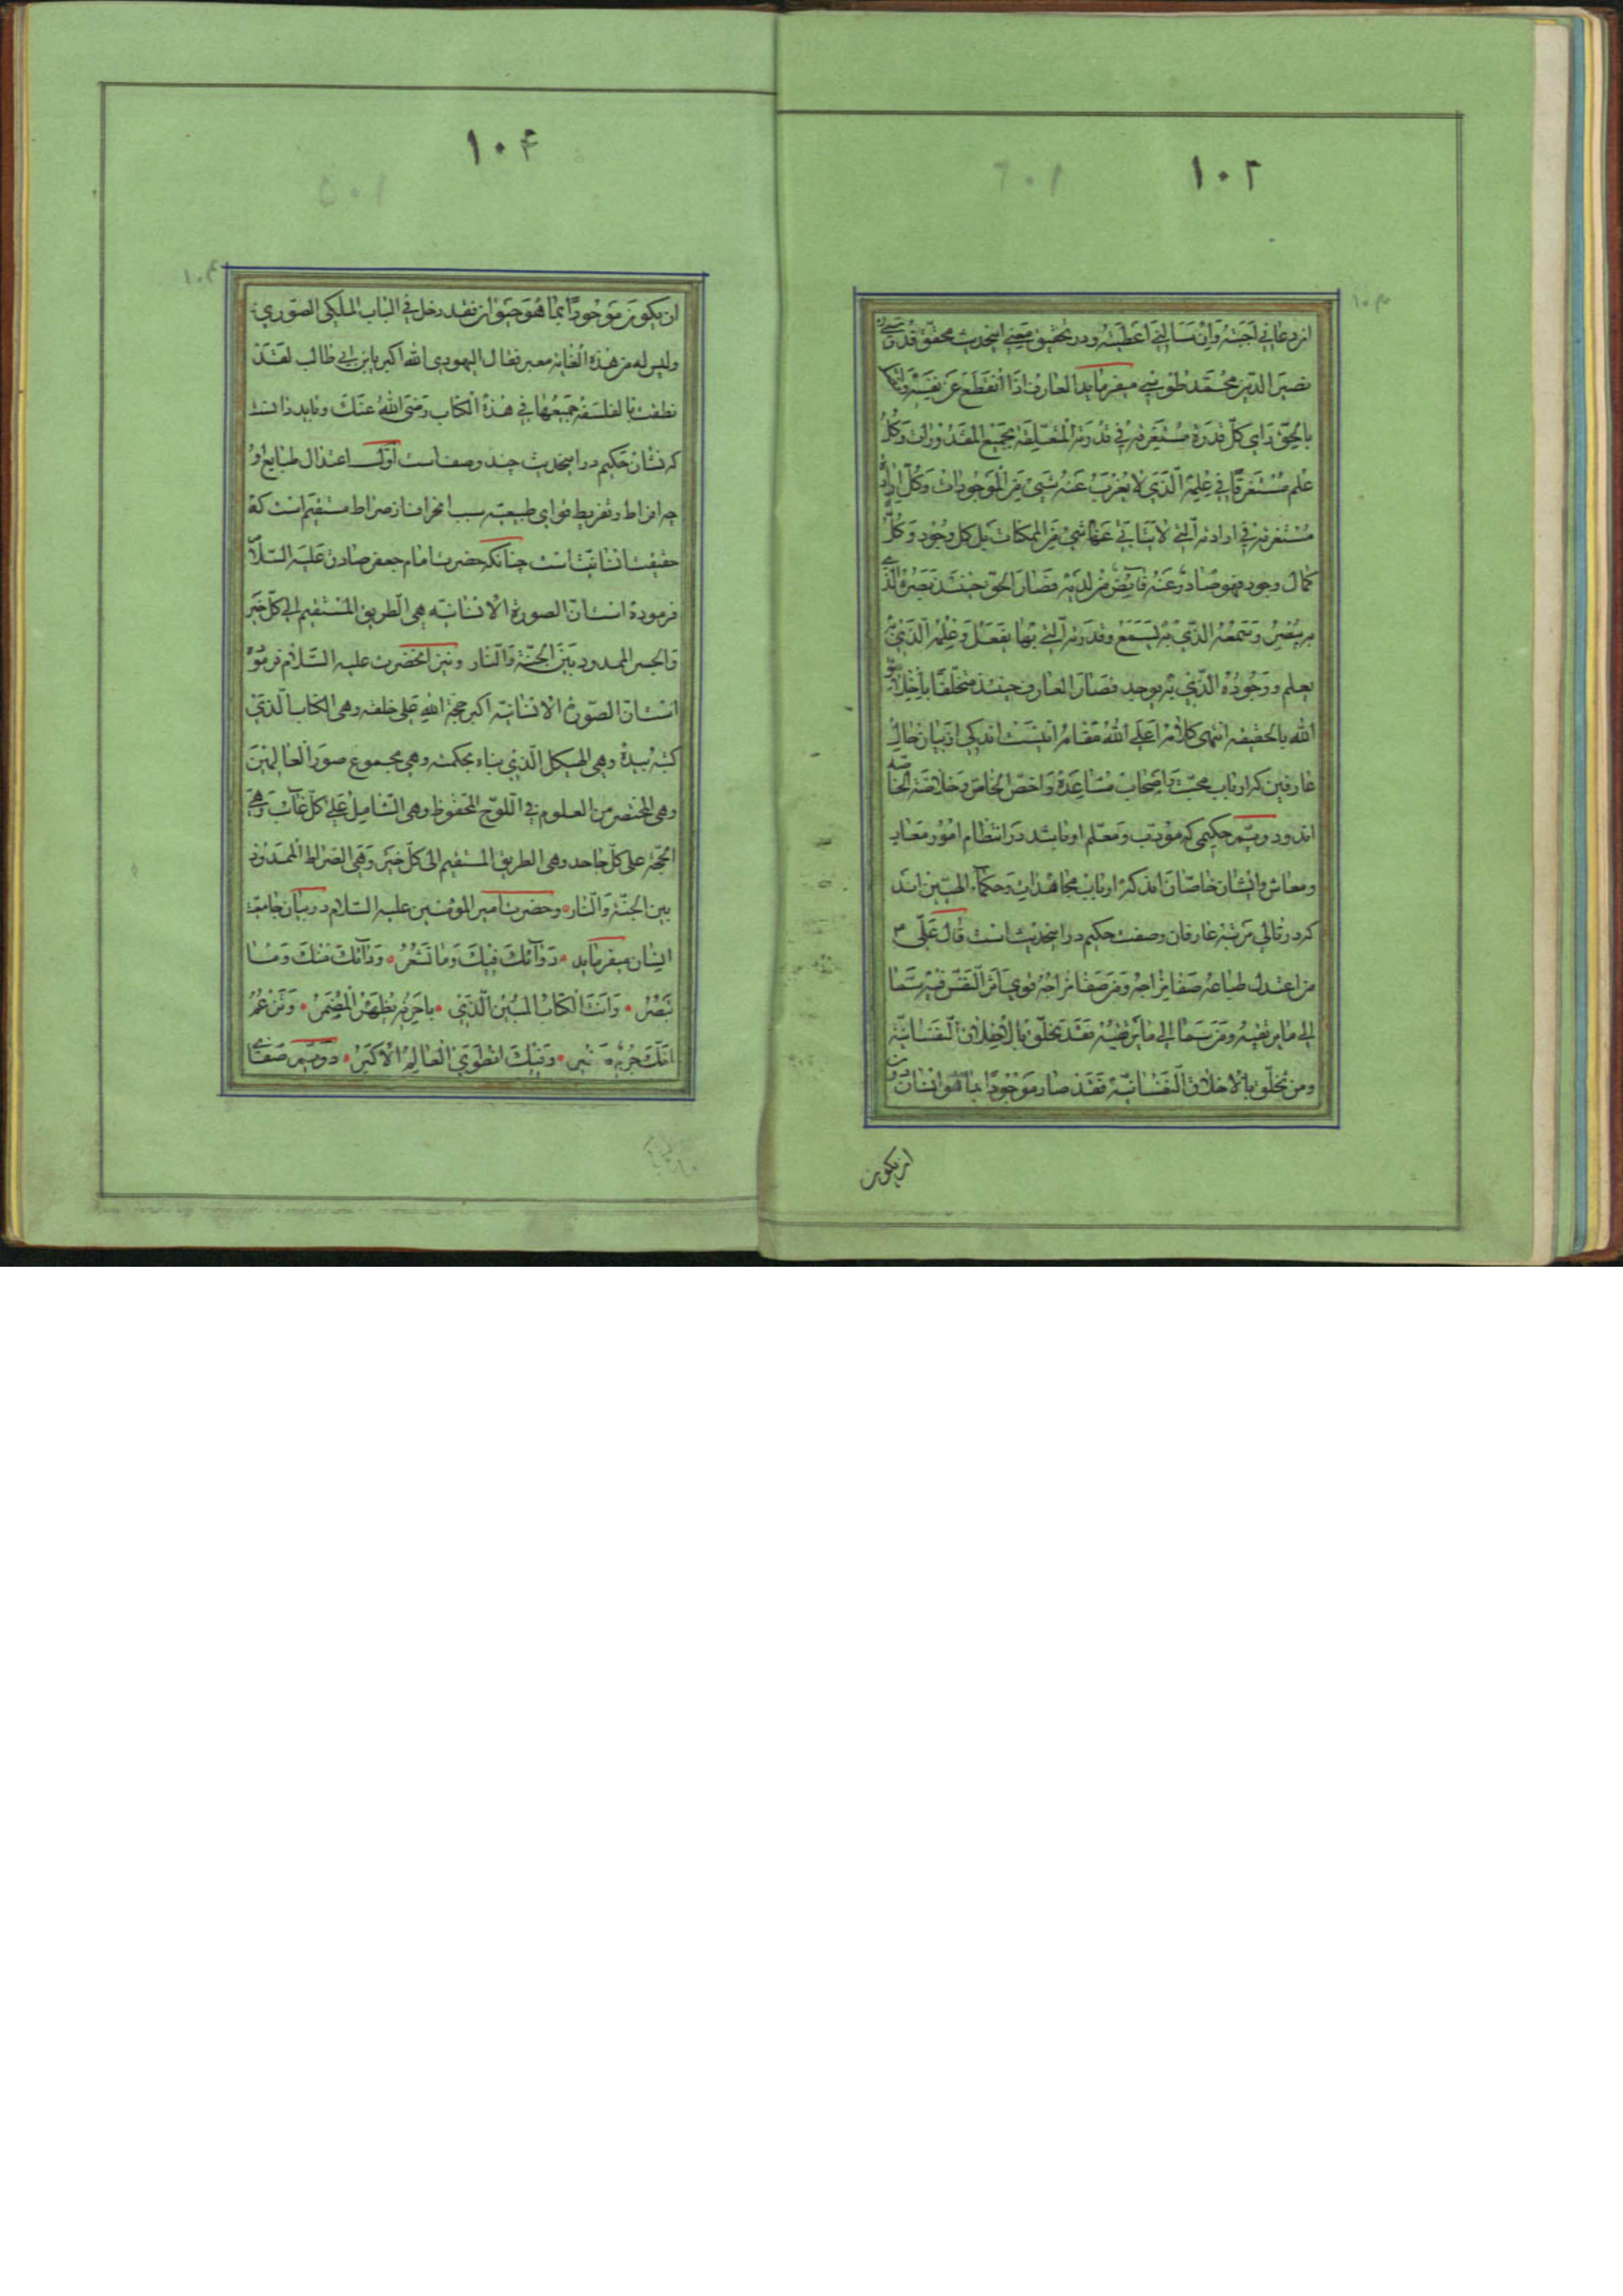 ۱۰۲
ان دعانی اجبته و ان سالنی اعطیته و در تحقیق معنی اینحدیث محقق قدوسی
نصیر الدین محمد طوسی میفرماید العارف اذا انقطع عن نفسه و اتصل
بالحق رای کل قدرة مستغرقة فی قدرته المتعلقة بجمیع المقدورات و کل
علم مستغرقا فی علمه الذی لا یعزب عنه شیئ من الموجودات و کل ارادة
مستغرقة فی ارادته التی لا یتابی عنها شیئ من الممکنات بل کل وجود و کل
کمال وجود فهو صادر عنه فایض من لدنه فصار الحق حینئذ بصره الذی
به یبصر و سمعه الذی به یسمع و قدرته التی بها یفعل و علمه الذی به
یعلم و وجوده الذی به یوجد فصار العارف حینئذ متخلقا باخلاق
الله بالحقیقه انتهی کلامه اعلی الله مقامه اینست اندکی از بیان حال
عارفین که ارباب محبت و اصحاب مشاهده و اخص الخاص و خلاصة الخاصه
اند دویم حکیمی که مودب و معلم او باشد در انتظام امور معاد
و معاش و ایشان خاصان اند که ارباب مجاهدات و حکماء الهیین اند
که در تالی مرتبه عارفان وصفت حکیم در اینحدیث است قال علی ع
من اعتدل طباعه صفا مزاجه و من صفا مزاجه قوی اثر النفس فیه سما
الی ما یرتقیه و من سما الی ما یرتقیه فقد تخلق بالاخلاق النفسانیة
و من تخلق بالاخلاق النفسانیة فقد صار موجودا بما هو انسان دون
ان یکون
۱۰۴
ان یکون موجودا بما هو حیوان فقد دخل فی الباب الملکی الصوری
ولیس له من هذه الغایة معبر فقال الیهودی الله اکبر یابن ابی طالب لقد
نطقت بالفلسفة جمیعها فی هذه الکتاب رضی الله عنک و باید دانست
که نشان حکیم در اینحدیث چند وصف است اول اعتدال طبایع او
چه افراط و تفریط قوای طبیعیه سبب انحراف از صراط مستقیم است که
حقیقت انسانیت است چنانکه حضرت امام جعفر صادق علیه السلام
فرموده است ان الصورة الانسانیه هی الطریق المستقیم الی کل خیر
و الجسر الممدود بین الجنة و النار و نیز انحضرت علیه السلام فرموده
است ان الصورة الانسانیة اکبر حجة الله علی خلقه وهی الکتاب الذی
کتبه بیده وهی الهیکل الذی بناه بحکمته وهی مجموع صور العالمین
وهی المختصر من العلوم فی اللوح المحفوظ وهی الشامل علی کل غائب وهی
الحجة علی کل جاحد وهی الطریق المستقیم الی کل خیر وهی الصراط الممدود
بین الجنة و النار و حضرت امیر المؤمنین علیه السلام در بیان جامعیت
انسان میفرماید دوائک فیک و ما تشعر و دائک منک و ما
تبصر و انت الکتاب المبین الذی باحرفه یظهر المضمر و تزعم
انک جرم صغیر و فیک انطوی العالم الاکبر دویم صفای